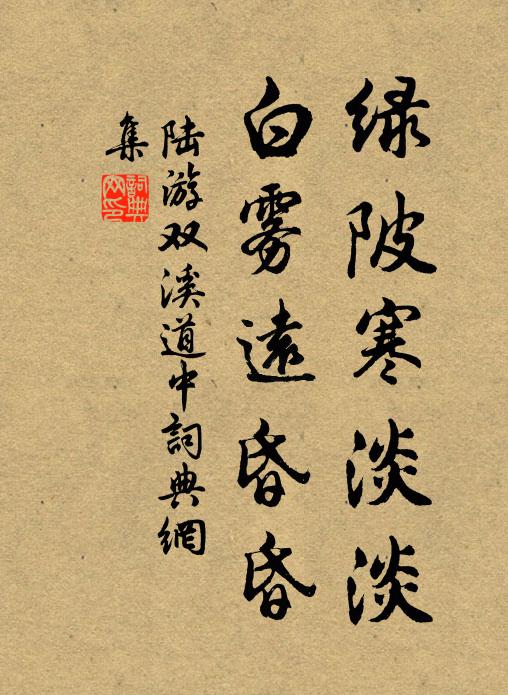 绿陂寒淡淡
白雾遠昏昏
陆游双溪道中詞典網
集
詞典网印